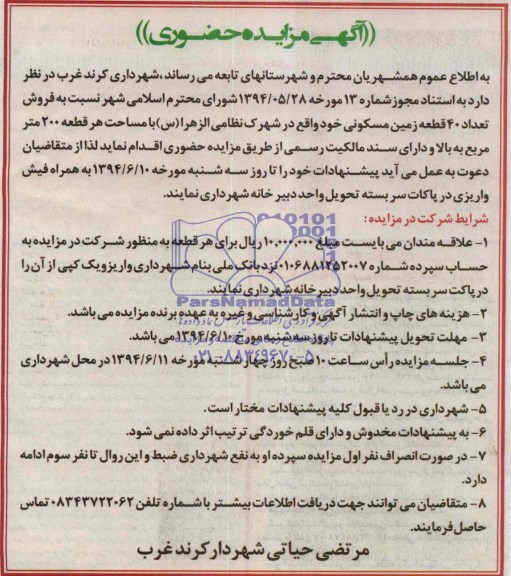 ((آگهی مزایده حضوری))
به اطلاع عموم همشهریان محترم و شهرستانهای تابعه می رساند، شهرداری کرند غرب در نظر
دارد به استناد مجوز شماره ۱۳ مورخه ۱۳۹۴/۰۵/۲۸ شورای محترم اسلامی شهر نسبت به فروش
تعداد ۴۰ قطعه زمین مسکونی خود واقع در شهرک نظامی الزهرا(س) با مساحت هر قطعه ۲۰۰ متر
مربع به بالا و دارای سند مالکیت رسمی از طریق مزایده حضوری اقدام نماید لذا از متقاضیان
دعوت به عمل می آید پیشنهادات خود را تا روز سه شنبه مورخه ۱۳۹۴/۶/۱۰ به همراه فیش
واریزی در پاکات سر بسته تحویل واحد دبیر خانه شهرداری نمایند.
شرایط شرکت در مزایده:
۱- علاقه مندان می بایست مبلغ ۱۰,۰۰۰,۰۰۰ ریال برای هر قطعه به منظور شرکت در مزایده به
حساب سپرده شماره ۰۱۰۶۸۸۱۲۵۲۰۰۷ نزد بانک ملی بنام شهرداری واریز و یک کپی از آن را
در پاکت سر بسته تحویل واحد دبیر خانه شهرداری نمایند.
ParsNamadData
۲- هزینه های چاپ و انتشار آگهی و کارشناسی و غیره به عهده برنده مزایده می باشد.
۳- مهلت تحویل پیشنهادات تا روز سه شنبه مورخ ۱۳۹۴/۶/۱۰ می باشد.
۰۲۱-۸۸۳۴۹۶۷۰-۵
۴- جلسه مزایده رأس ساعت ۱۰ صبح روز چهار شنبه مورخه ۱۳۹۴/۶/۱۱ در محل شهرداری
می باشد.
۵- شهرداری در رد یا قبول کلیه پیشنهادات مختار است.
۶- به پیشنهادات مخدوش و دارای قلم خوردگی ترتیب اثر داده نمی شود.
۷- در صورت انصراف نفر اول مزایده سپرده او به نفع شهرداری ضبط و این روال تا نفر سوم ادامه
دارد.
۸- متقاضیان می توانند جهت دریافت اطلاعات بیشتر با شماره تلفن ۰۸۳۴۳۷۲۲۰۶۲ تماس
حاصل فرمایند.
مرتضی حیاتی شهردار کرند غرب